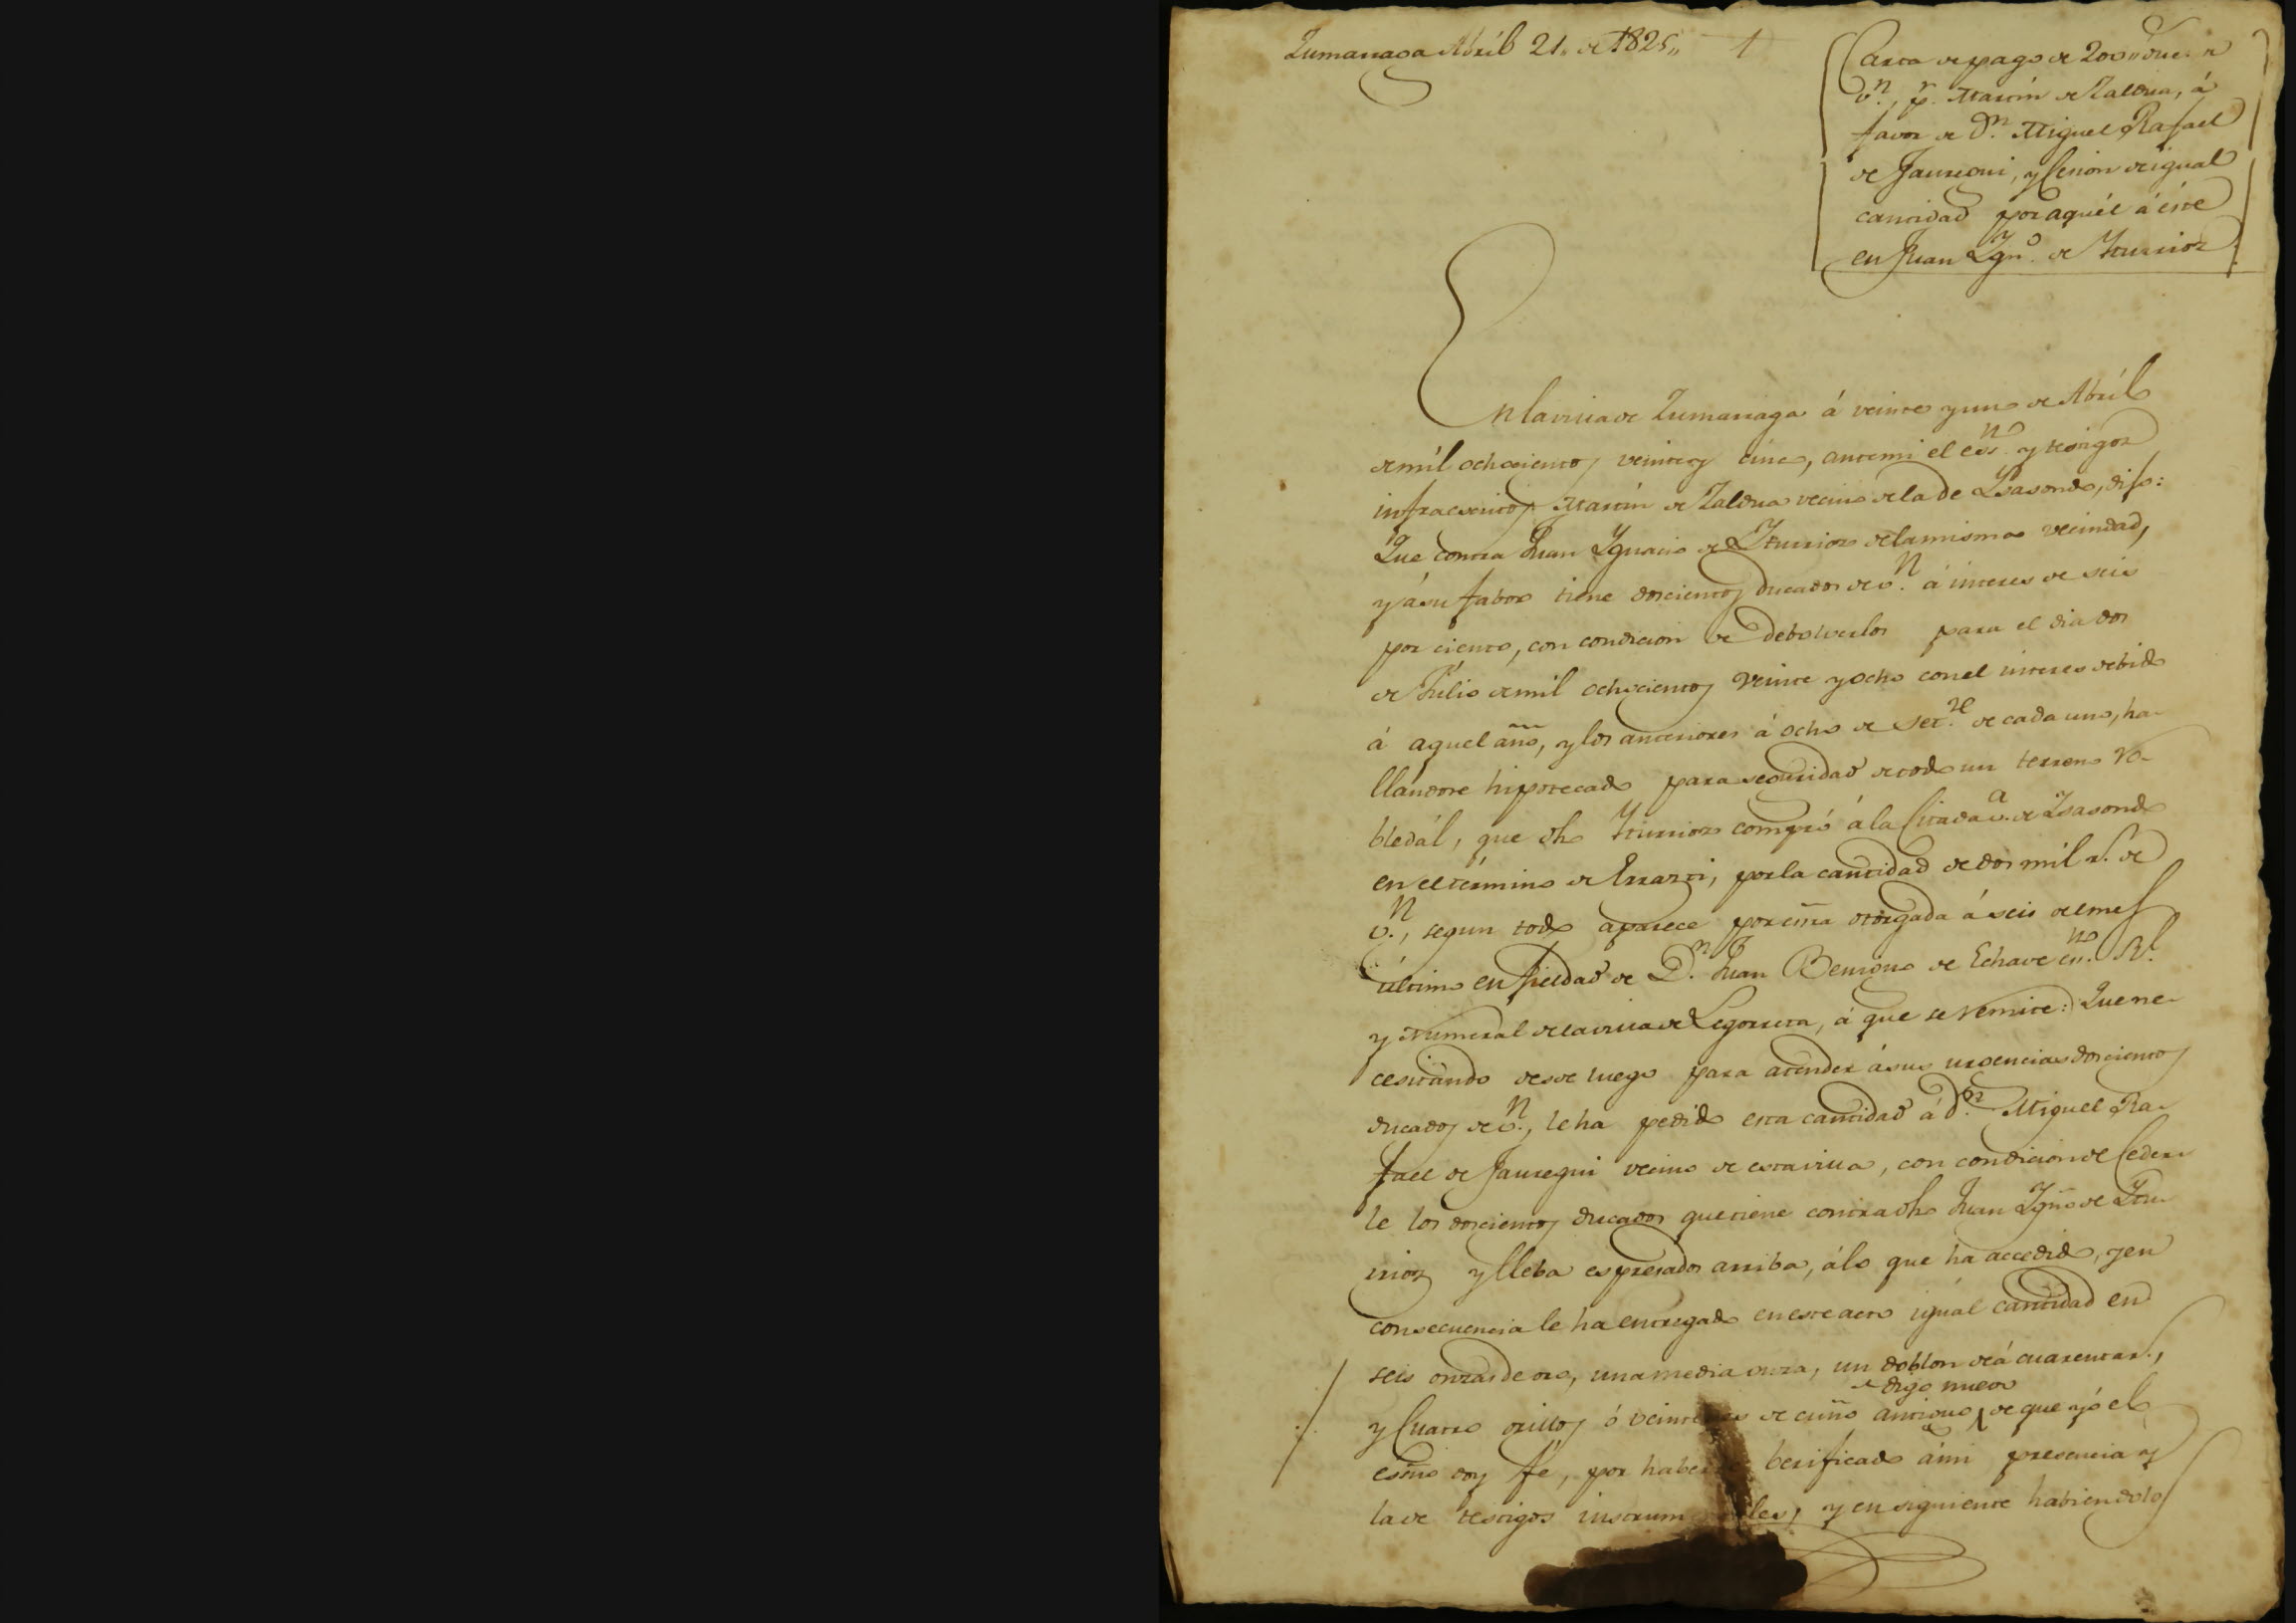 Zumarraga Abril 21,, de 1825,, 1
Carta de pago de 200,, duc.s de
v.n, p.r Martin de Zaldua, á
favor de D.n Miguel Rafael
de Jauregui, y Cesion de igual
cantidad por aquél á éste
en Juan Ygn.o de Yturrioz.
En la villa de Zumarraga á veinte y uno de Abril
de mil ochocientos veinte y cinco, ante mi el ess.no y testigos
infraescritos Martin de Zaldua vecino de la de Ysasondo, dijo:
Que contra Juan Ygnacio de Yturrioz de la misma vecindad,
y á su fabor tiene doscientos ducados de v.n á interes de seis
por ciento, con condicion de debolverlos para el dia dos
de Julio de mil ochocientos veinte y ocho con el interes debido
á aquel año, y los anteriores á ocho de set.re de cada uno, ha-
llandose hipotecado para seguridad de todo un terreno ro-
bledál, que dho Yturrioz compró á la Citada v.a de Ysasondo
en el término de Errazti, por la cantidad de dos mil r.s de
v.n, segun todo aparece por essra otorgada á seis del mes
último en fieldad de D.n Juan Benigno de Echave ess.no R.l
y Numeral de la villa de Legorreta, á que se remite: Que ne-
cesitando desde luego para atender á sus urgencias doscientos
ducados de v.n, le ha pedido esta cantidad á d.n Miguel Ra-
fael de Jauregui vecino de esta villa, con condicion de Ceder-
le los doscientos ducados que tiene contra dho Juan Ygño de Ytu-
rrioz y lleba espresados arriba, á lo que ha accedido, y en
consecuencia le ha entregado en este acto igual cantidad en
seis onzas de oro, una media onza, un doblon de á cuarenta r.s,
digo nuevo
y Cuatro orillos ó veintenes de cuño antiguo, de que yó el
essño doy fé, por haberse berificado á mi presencia y
la de testigos instrum les, y en siguiente habiendolos